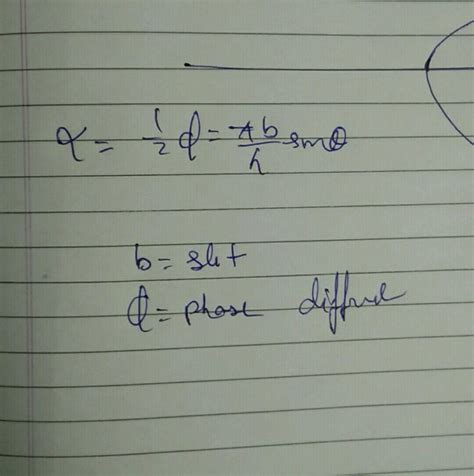 α = 1/2 ϕ = πb/λ sinθ
b = slit
ϕ = phase diffrnce